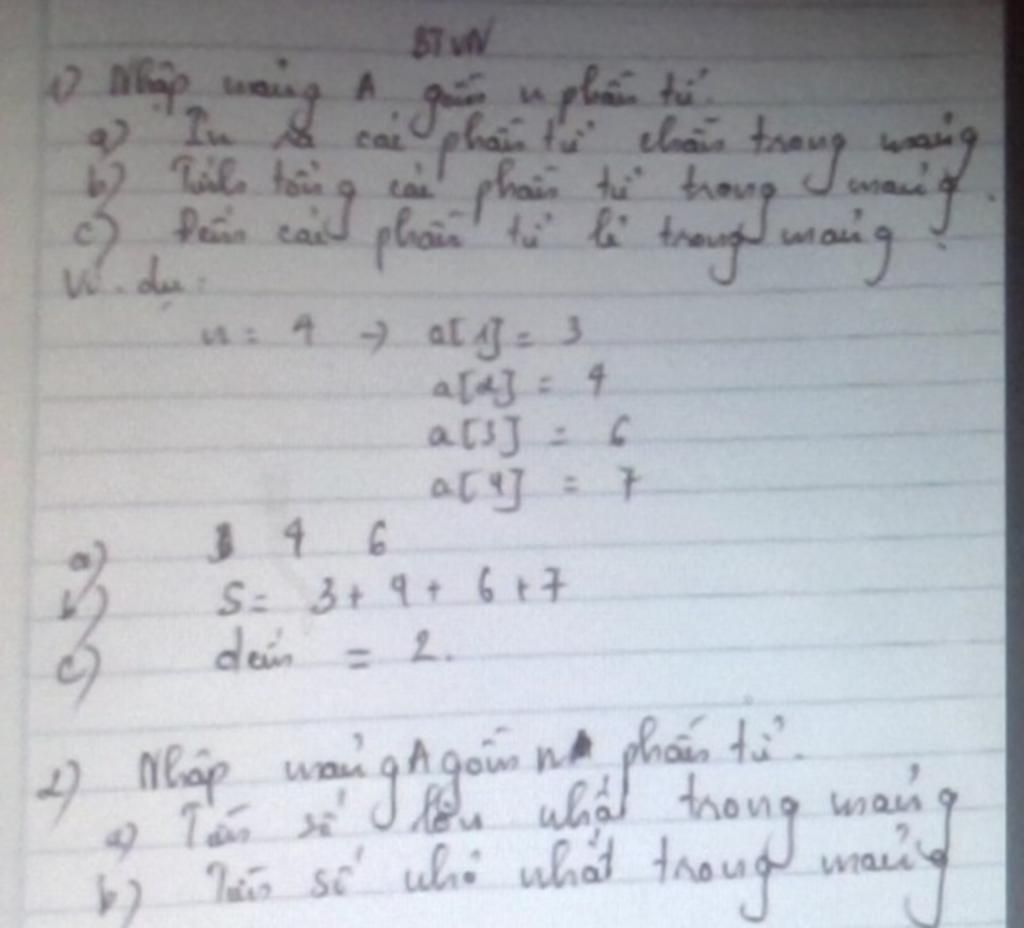 BTVN
1) Nhập mảng A gồm n phần tử.
a) In ra các phần tử chẵn trong mảng
b) Tính tổng các phần tử trong mảng.
c) Đếm các phần tử lẻ trong mảng.
Ví dụ:
n = 4 → a[1] = 3
a[2] = 4
a[3] = 6
a[4] = 7
a) 4 6
b) S = 3 + 4 + 6 + 7
c) đếm = 2.
2) Nhập mảng A gồm n phần tử.
a) Tìm số lớn nhất trong mảng
b) Tìm số nhỏ nhất trong mảng